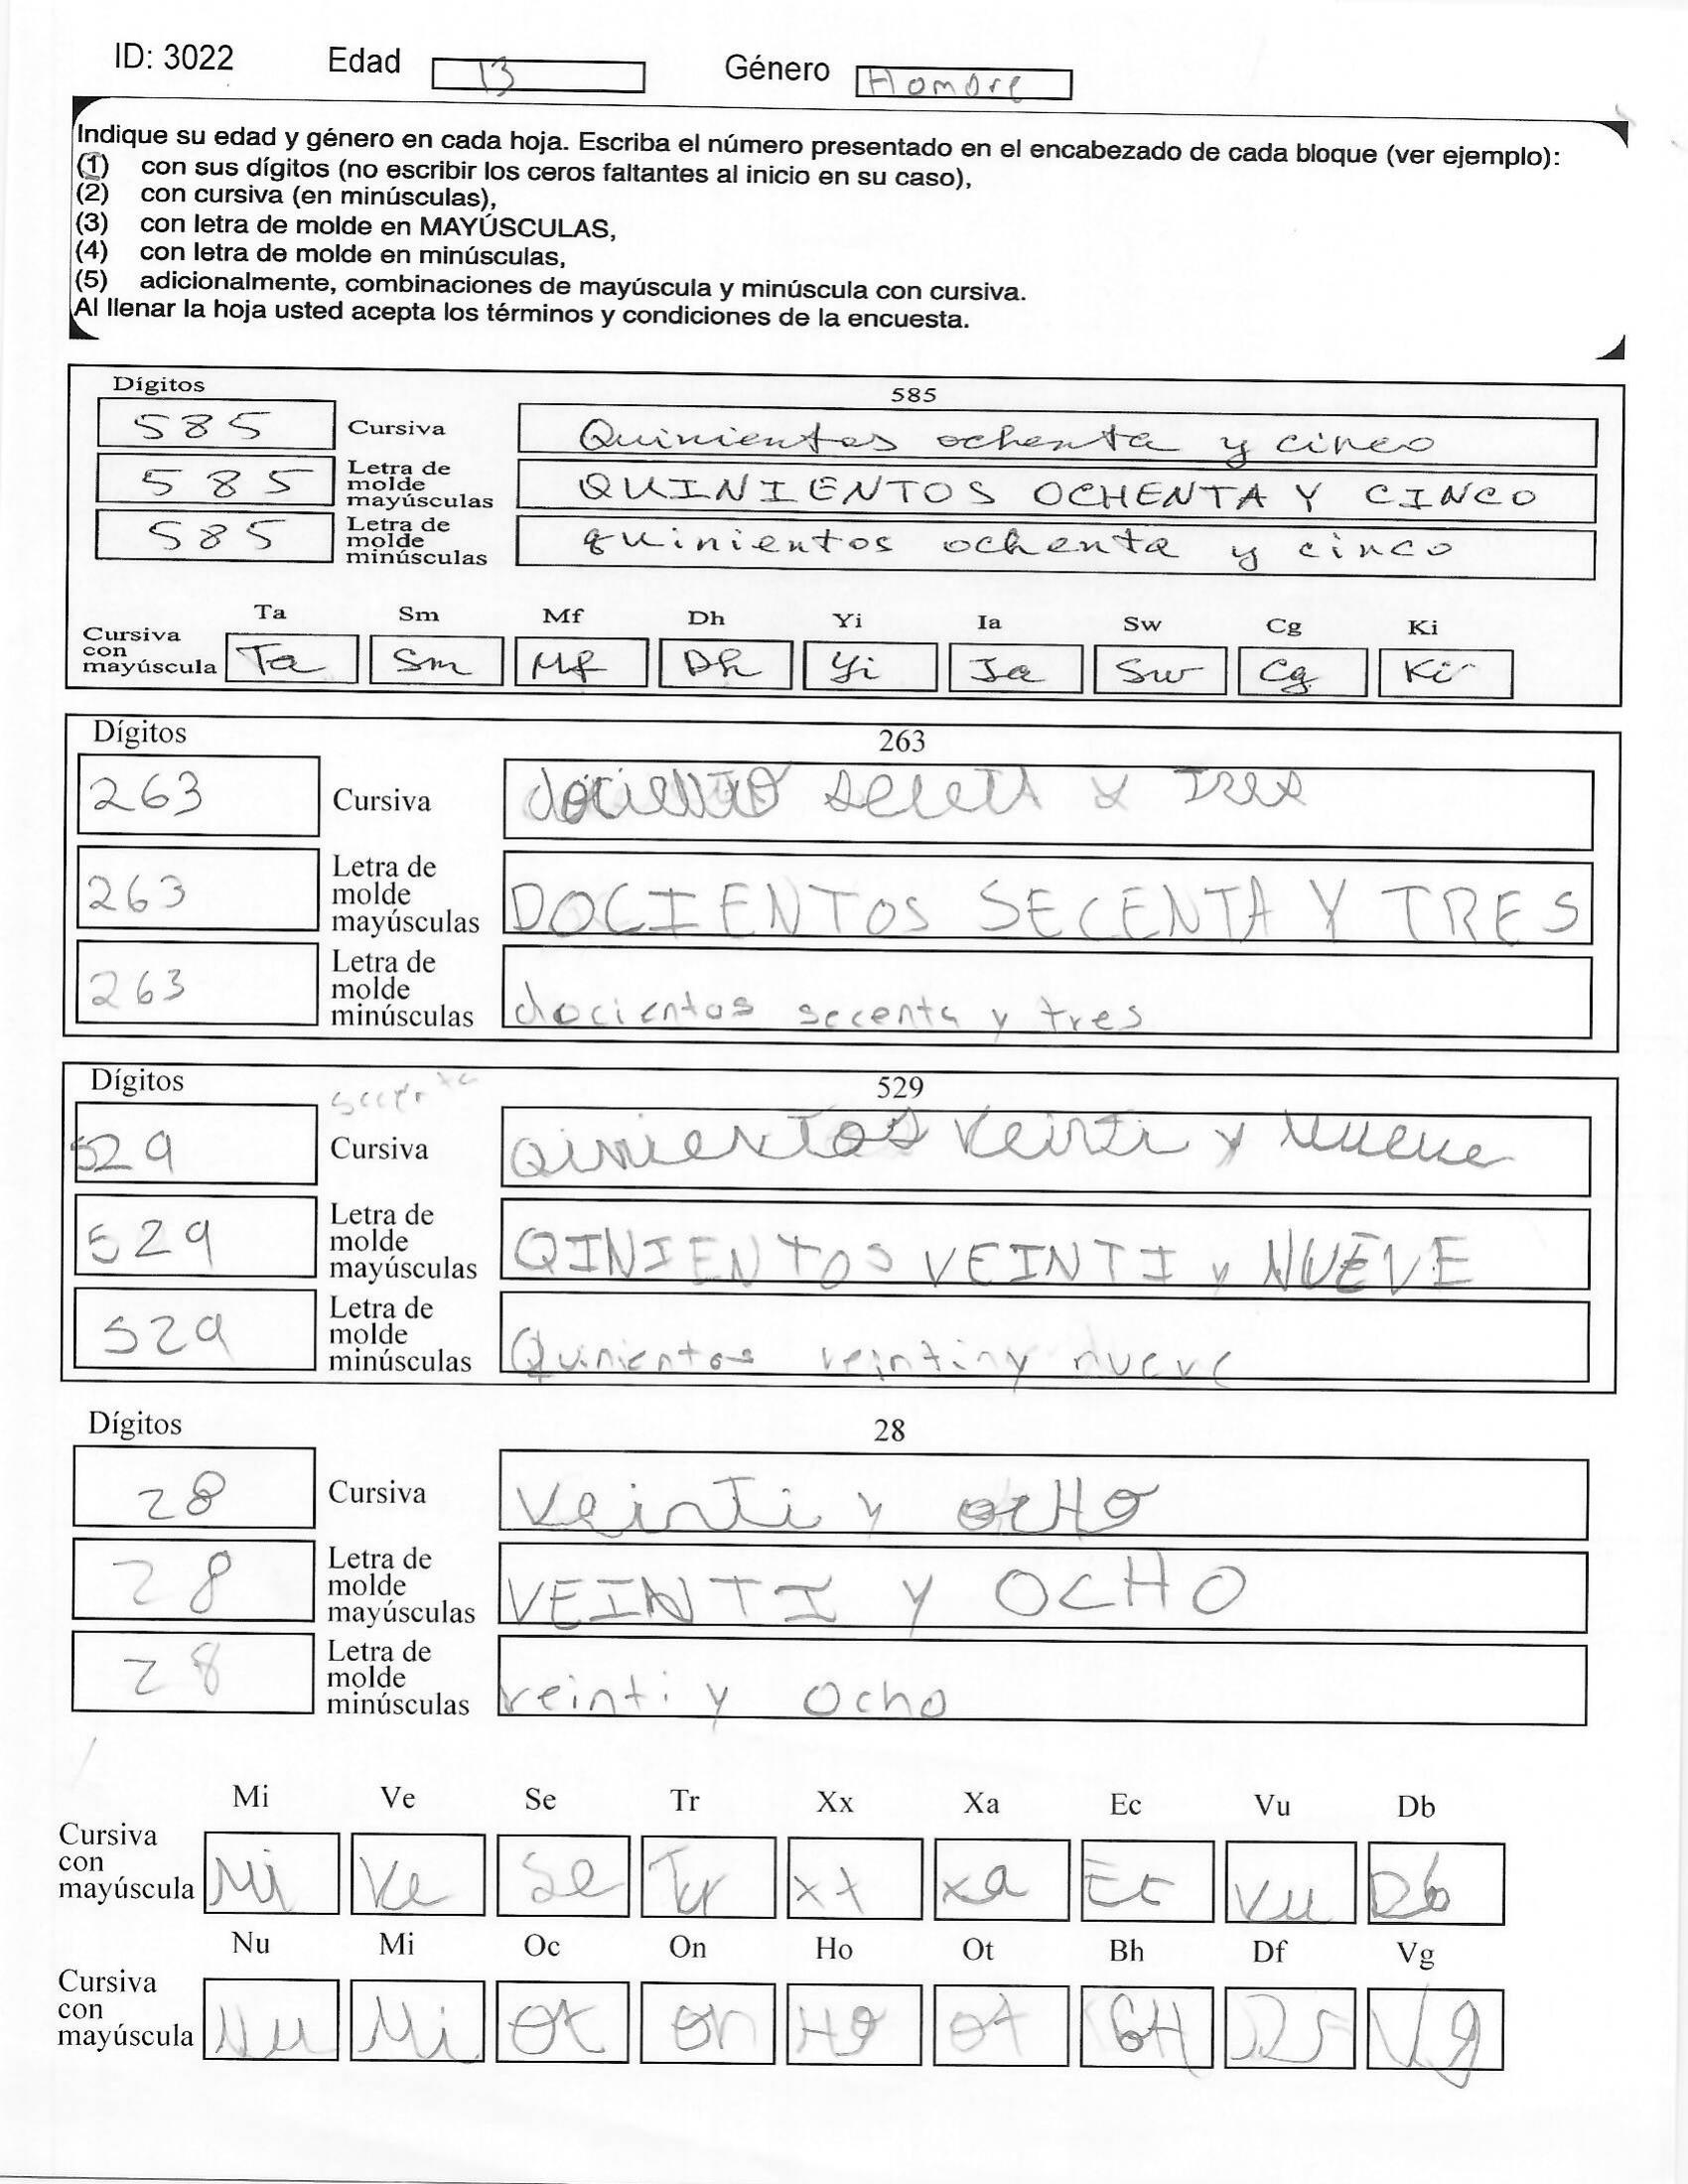 ID: 3022 Edad 13 Género Hombre
Indique su edad y género en cada hoja. Escriba el número presentado en el encabezado de cada bloque (ver ejemplo):
(1) con sus dígitos (no escribir los ceros faltantes al inicio en su caso),
(2) con cursiva (en minúsculas),
(3) con letra de molde en MAYÚSCULAS,
(4) con letra de molde en minúsculas,
(5) adicionalmente, combinaciones de mayúscula y minúscula con cursiva.
Al llenar la hoja usted acepta los términos y condiciones de la encuesta.
Dígitos 585
585 Cursiva Quinientos ochenta y cinco
585 Letra de molde mayúsculas QUINIENTOS OCHENTA Y CINCO
585 Letra de molde minúsculas quinientos ochenta y cinco
Ta Sm Mf Dh Yi Ia Sw Cg Ki
Cursiva con mayúscula Ta Sm Mf Dh Yi Ia Sw Cg Ki
Dígitos 263
263 Cursiva y Tres
263 Letra de molde mayúsculas DOCIENTOS SECENTA Y TRES
263 Letra de molde minúsculas docientos secenta y tres
Dígitos 529
529 Cursiva Qinientos Veinti y Nueve
529 Letra de molde mayúsculas QINIENTOS VEINTI y NUEVE
529 Letra de molde minúsculas Quinientos nueve
Dígitos 28
28 Cursiva Veinti y ocHo
28 Letra de molde mayúsculas VEINTI Y OCHO
28 Letra de molde minúsculas veinti y Ocho
Mi Ve Se Tr Xx Xa Ec Vu Db
Cursiva con mayúscula Mi Ve Se Tr Xx Xa Ec Vu Db
Nu Mi Oc On Ho Ot Bh Df Vg
Cursiva con mayúscula Nu Mi Oc On Ho Ot BH Df Vg